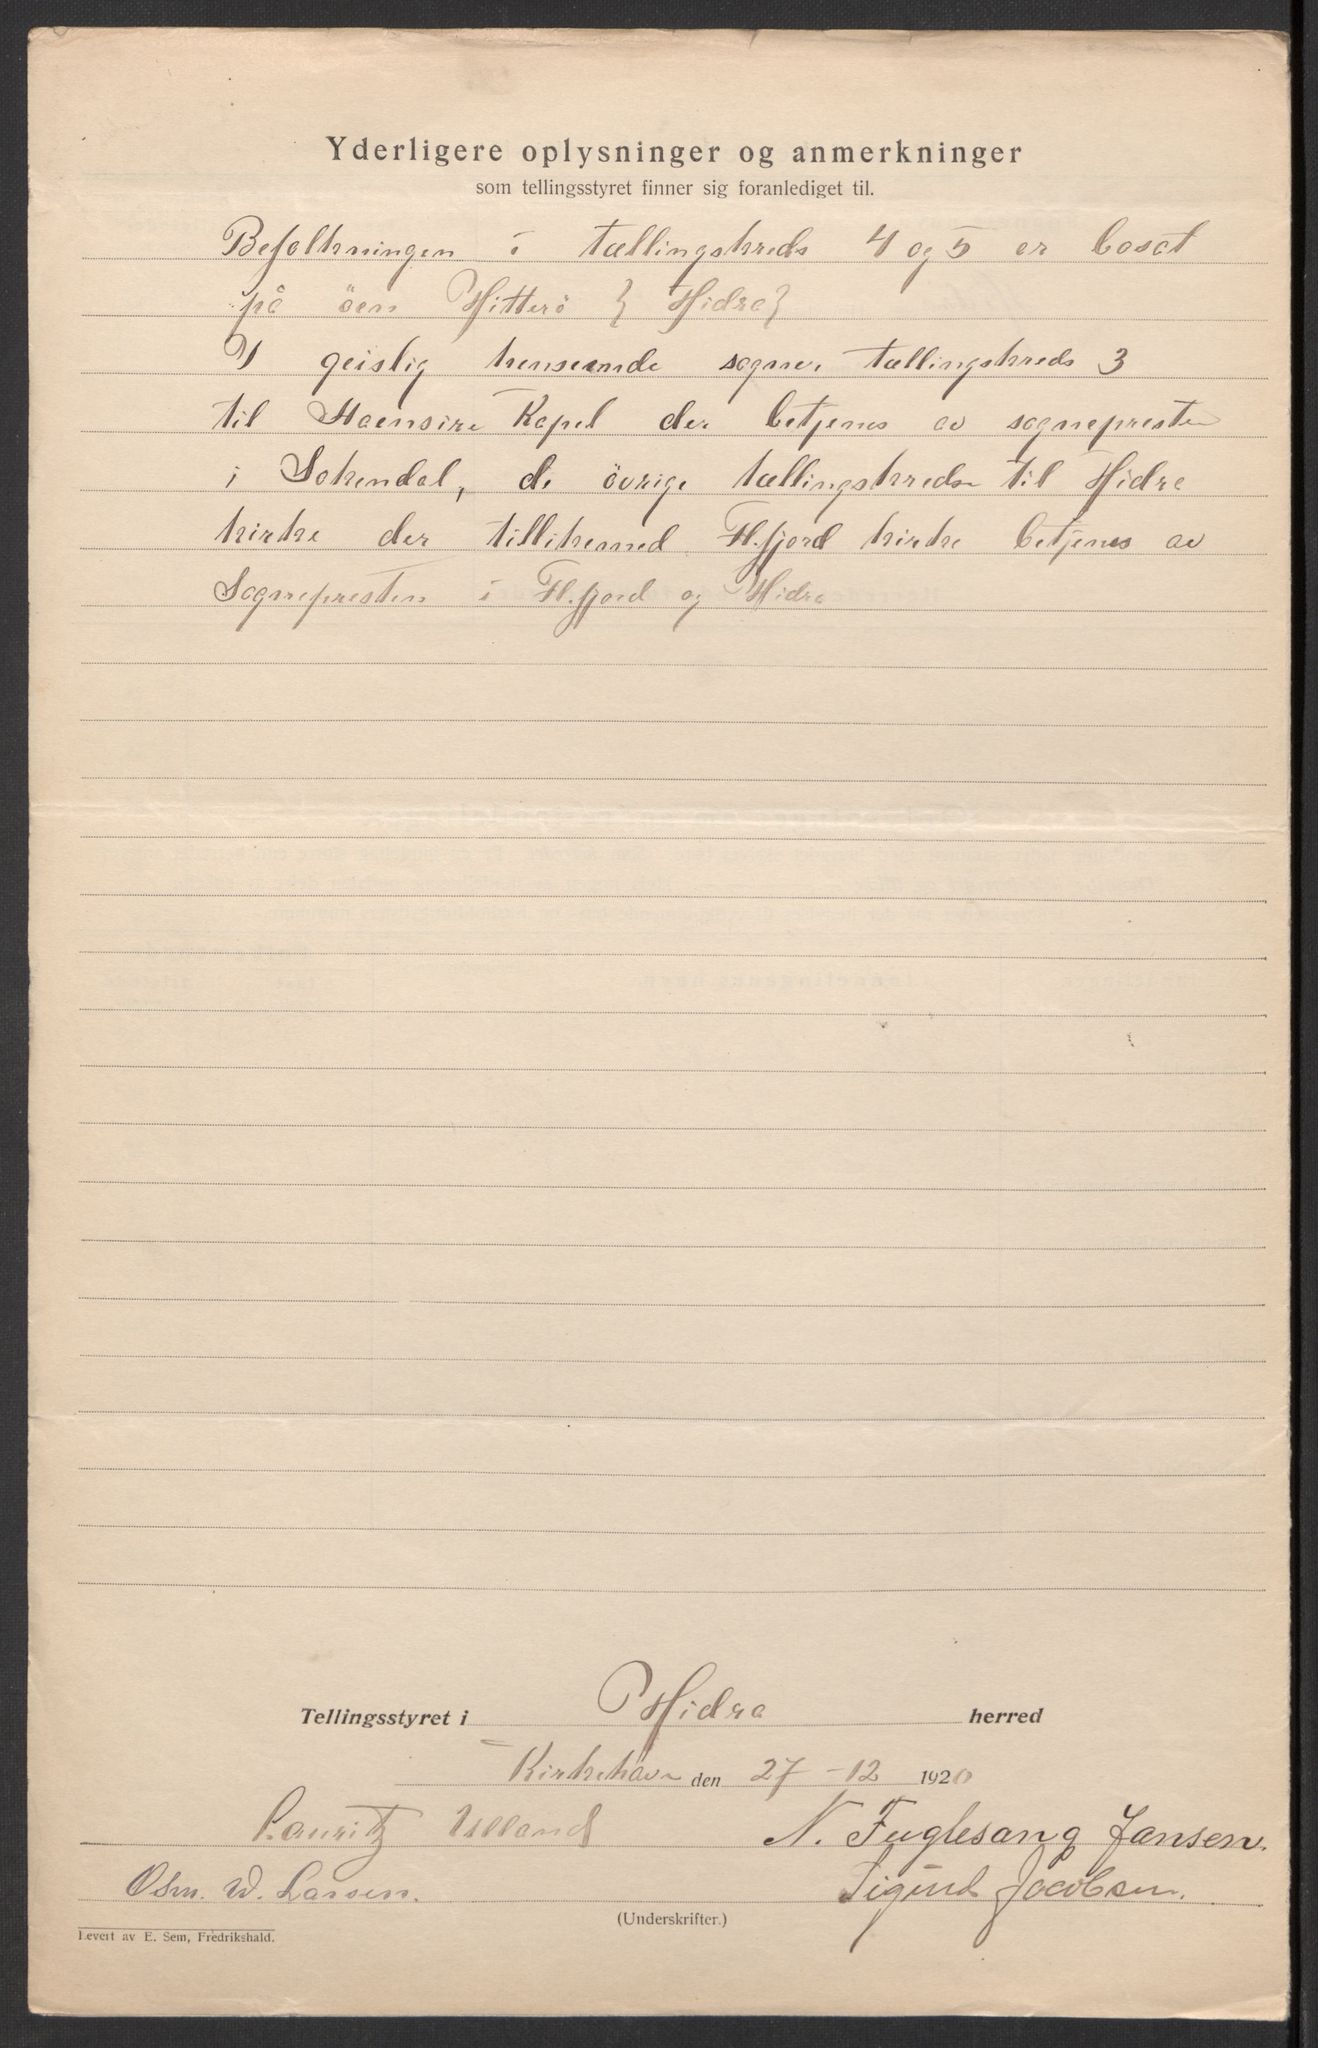 Yderligere oplysninger og anmerkninger
som tellingsstyret finner sig foranlediget til.
Befolkningen i tællingskreds 4 og 5 er bosat
på öen Hitterö { Hidra }
I geislig henseende sogner tællingskreds 3
til Aaensire Kapel der betjenes av sognepresten
i Sokendal, de övrige tællingskredse til Hidra
kirke der tillikemed Fl.fjord kirke betjenes av
Sognepresten i Fl.fjord og Hidra
Tellingsstyret i Hidra herred
Kirkehavn den 27-12 1920
Lauritz N. Fuglesang Jansen.
Osm. W. Larsen. Sigurd Jacobsen.
(Underskrifter.)
Levert av E. Sem, Fredrikshald.